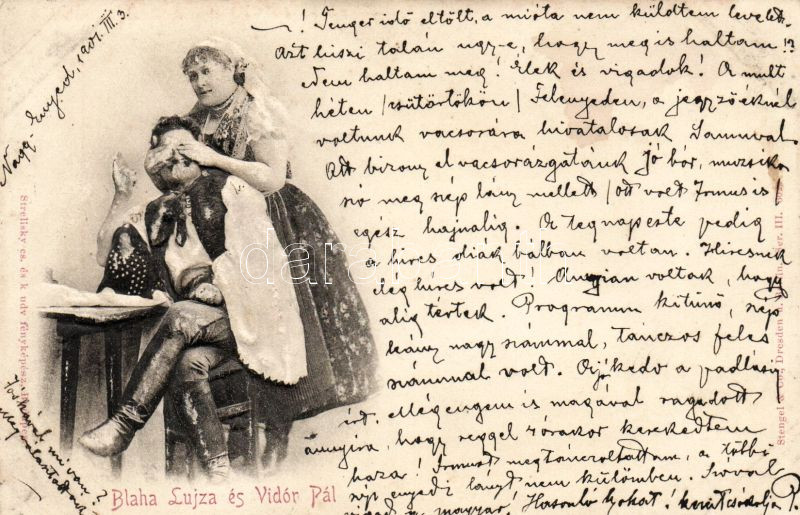 Nagy-Enyed, 1901. III. 3.
! Tenger idő eltölt, a mióta nem küldtem levelet.
Azt hiszi talán ugy-e, hogy meg is haltam!?
Nem haltam meg! Élek és vigadok! A mult
héten /csütörtökön/ Felenyeden, a jegyzőéknél
voltunk vacsorára hivatalosak
Azt bizony el vacsorázgatánk Jó bor, muzsika
szó meg szép lány mellett /ott volt Irmus is
egész hajnalig. A tegnapeste pedig
a híres diák bálban voltam. Hiresnek
elég híres volt! Annyian voltak, hogy
alig fértek. Programm kitünő, szép
leány nagy számmal, tánczos feles
számmal volt. A jókedv a padlásig
ért. Még engem is magával ragadott
annyira, hogy reggel 4 órakor kerekedtem
haza! Irmust megtánczoltattam, a többi
szép enyedi lányt nem külömben. Szóval
magyar! Hasonló jókat!
mi van?
Blaha Lujza és Vidór Pál
Strelisky cs. és k. udv. fényképész
Stengel & Co., Dresden
darabanth